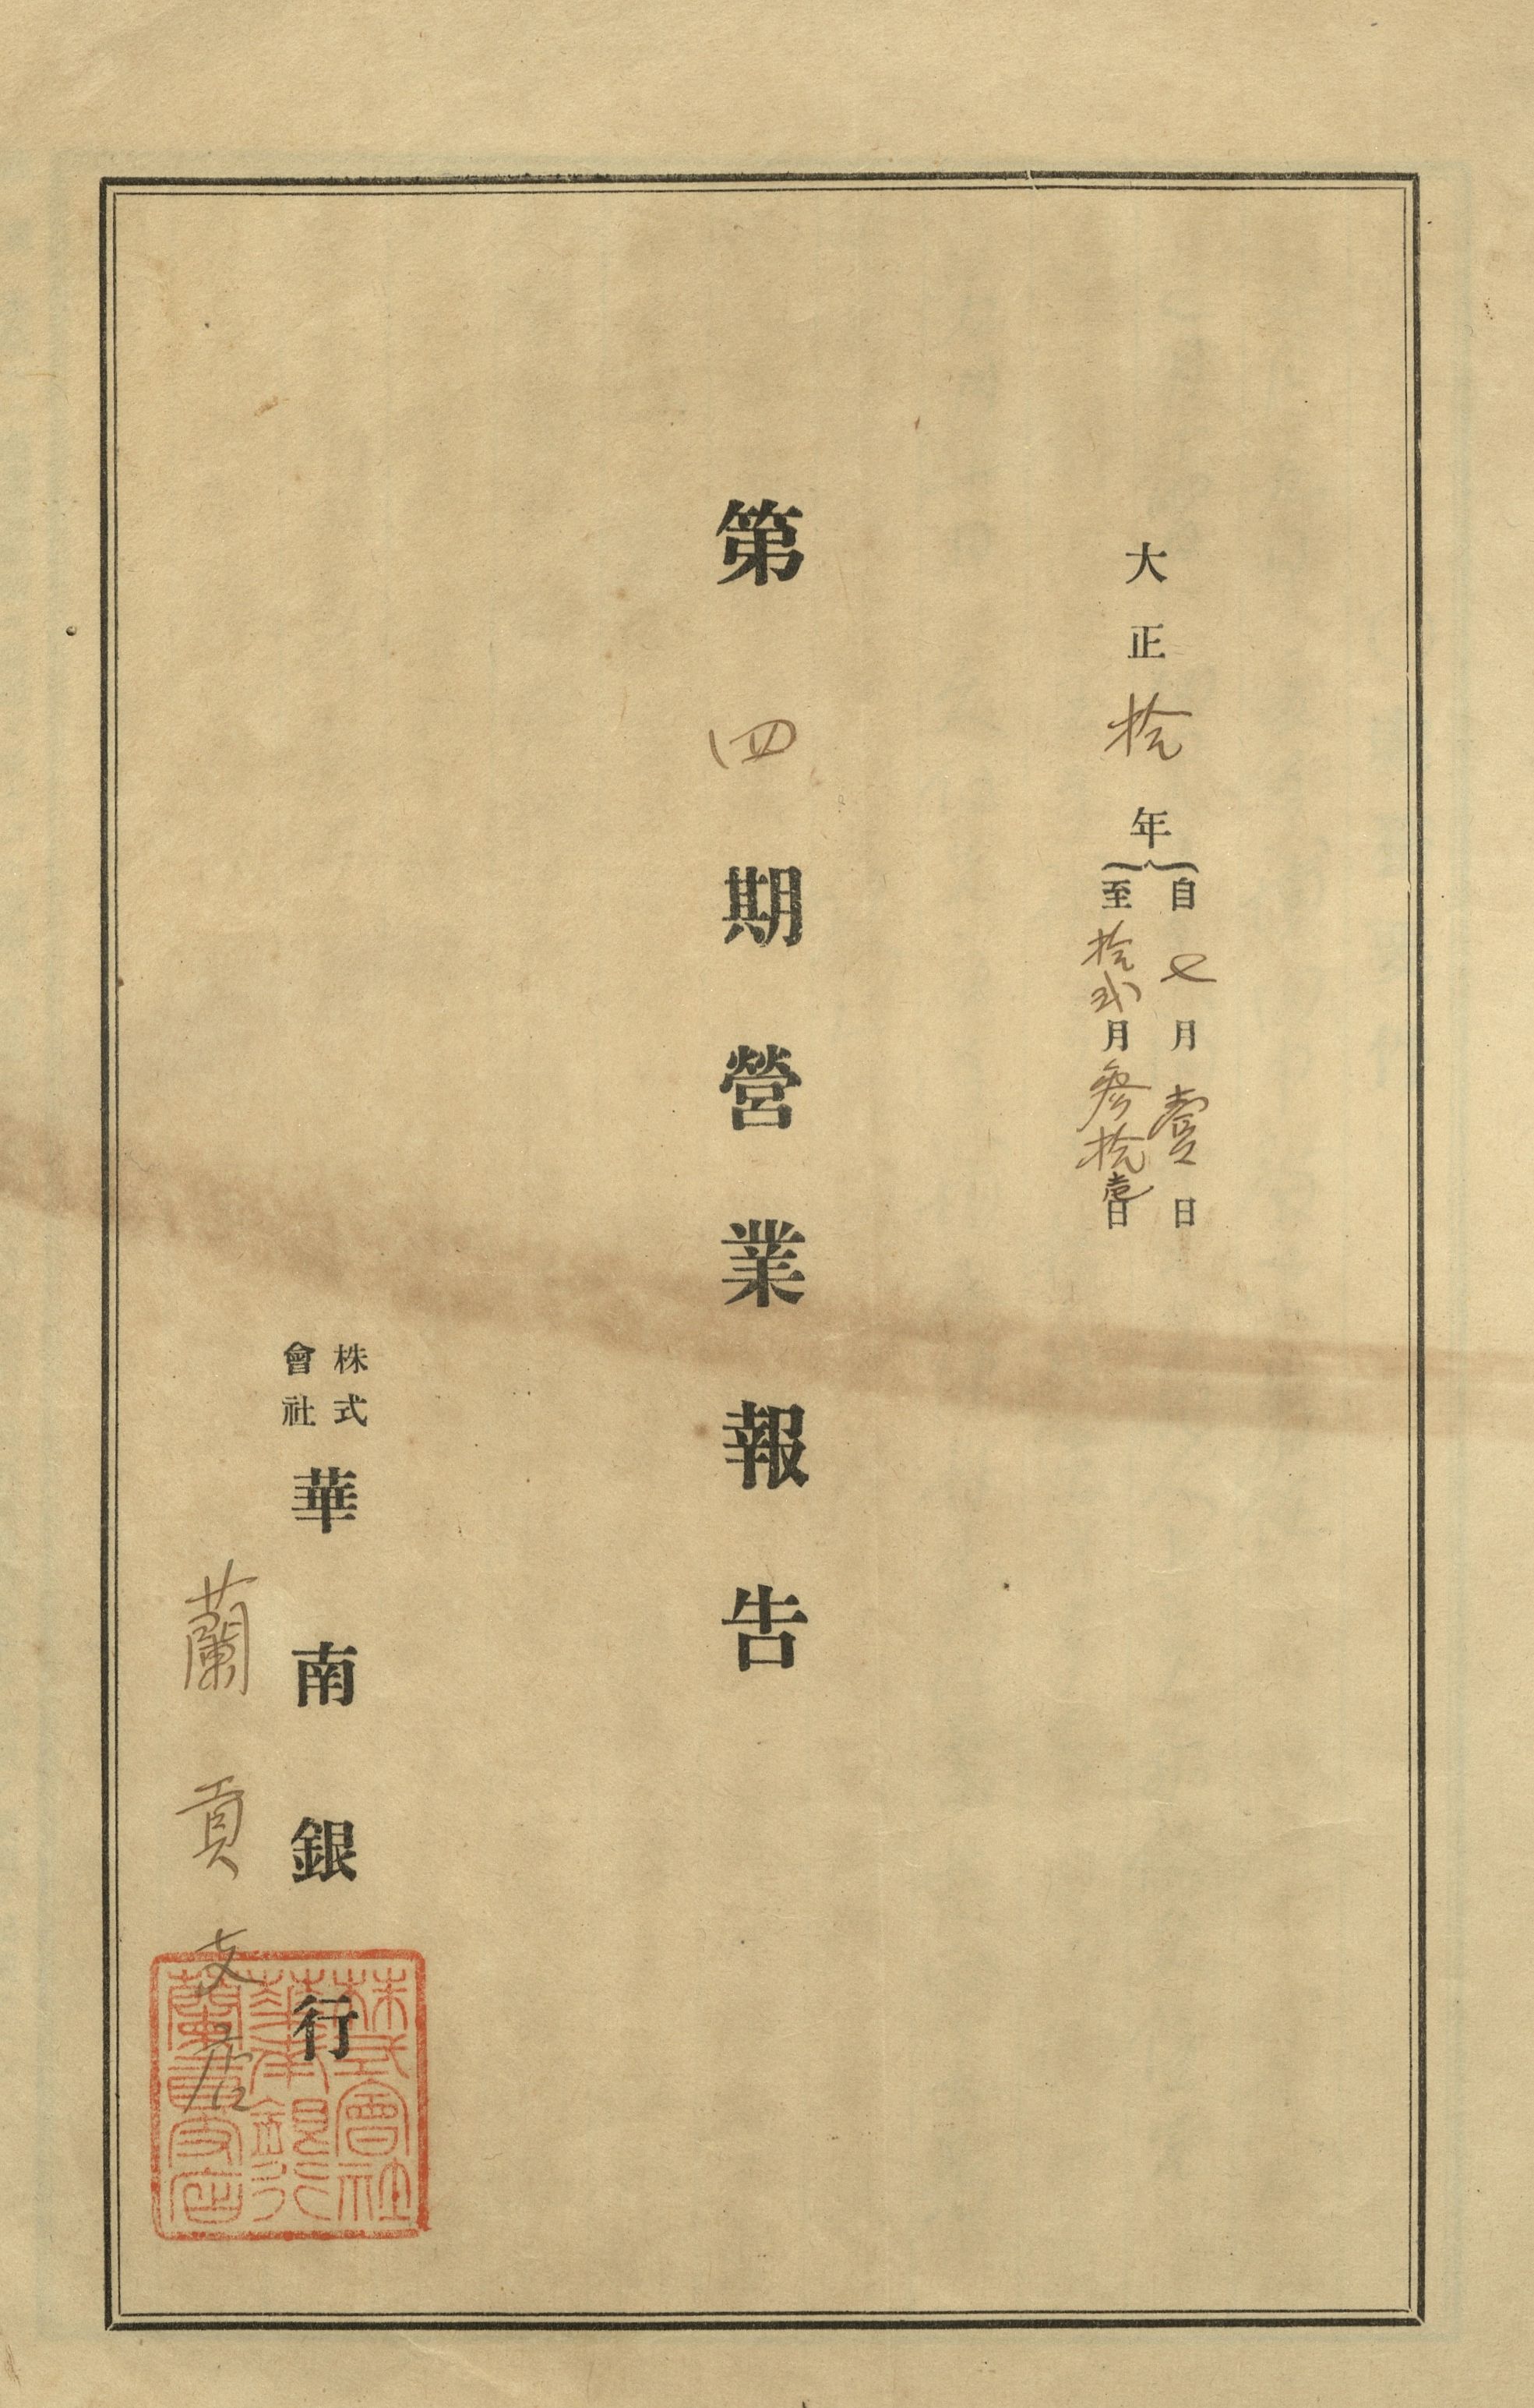 大正拾年
自七月壹日
至拾弐月参拾壹日
第四期營業報告
株式
會社
華南銀行
蘭貢支店
株式會社
華南銀行
蘭貢支店